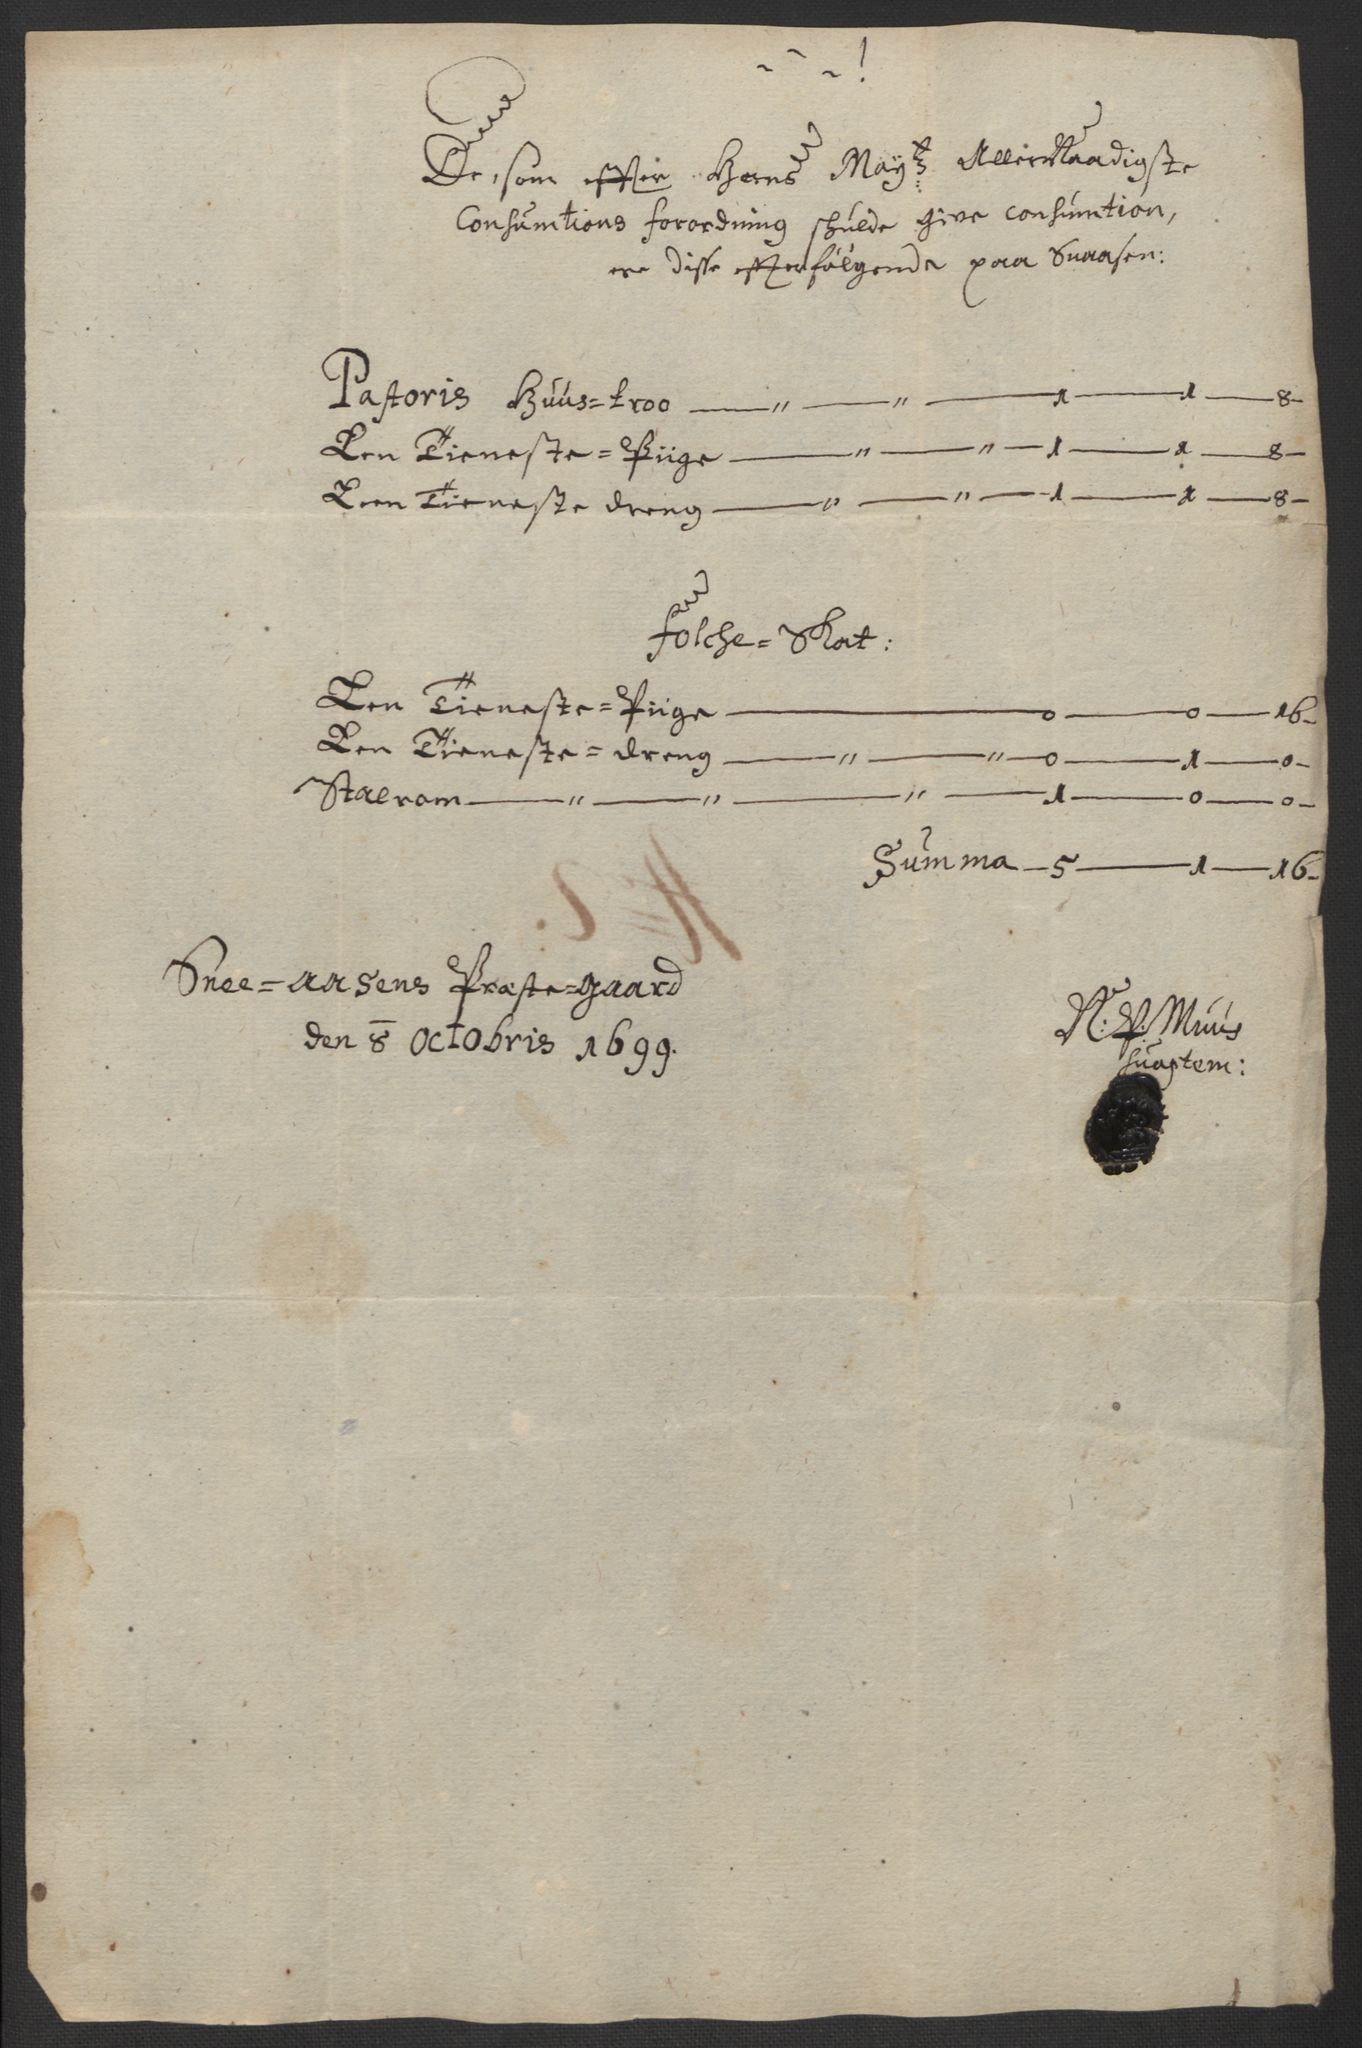 De, som effter Hans Mayᵗˢ Allernaadigste
Consumtions forordning schulde give consumtion,
ere disse effterfölgende paa Snaasen:
Pastoris Huus=troo — " — " — 1 — 1 — 8 -
Een Tieneste=Piige — " — " — 1 — 1 — 8 -
Een Tieneste dreng — " — " — 1 — 1 — 8 -
folche=Skat:
Een Tieneste=Piige — 0 — 0 — 16 -
Een Tieneste=dreng — " — " — 0 — 1 — 0 -
Stalrom — " — " — " — 1 — 0 — 0 -
Summa — 5 — 1 — 16 -
Snee=aasens Præste=gaard
den 8 Octobris 1699.
N: P: Muus